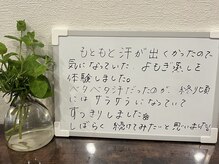 もともと汗が出にくかったので
気になっていた、よもぎ蒸しを
体験しました。
ベタベタ汗だったのが、終り頃
にはサラサラになっていて
すっきりしました
しばらく続けてみたいと思います